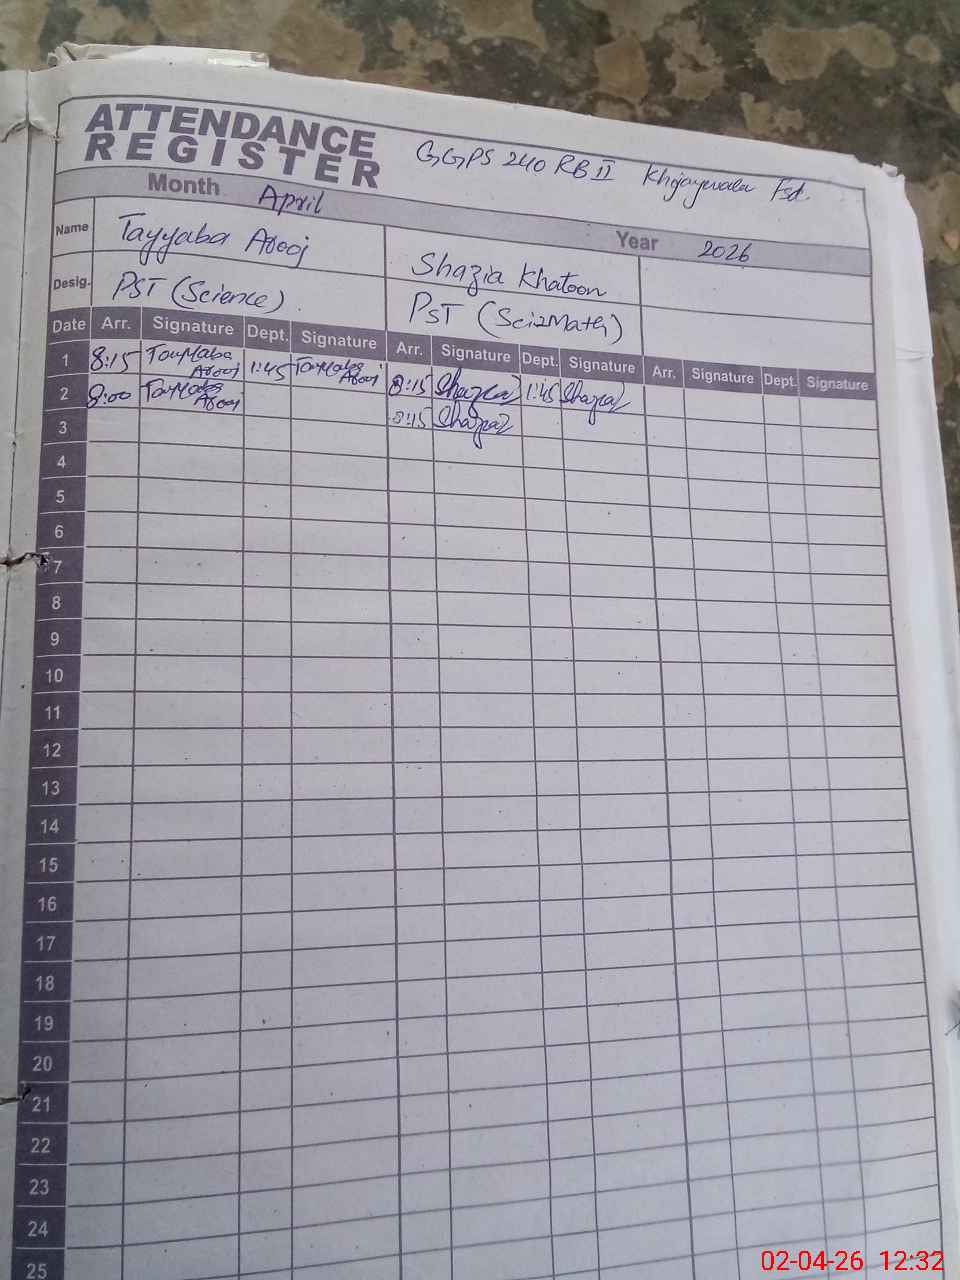 ATTENDANCE
REGISTER
GGPS 240 RB II Khijaywala Fsd.
Month April
Year 2026
Name Tayyaba Arooj Shazia Khatoon
Desig. PST (Science) PST (Sci&Math)
Date Arr. Signature Dept. Signature Arr. Signature Dept. Signature Arr. Signature Dept. Signature
1 8:15 Tayyaba Arooj 1:45 Tayyaba Arooj 8:15 Shazia 1:45 Shazia
2 8:00 Tayyaba Arooj 8:15 Shazia
3
4
5
6
7
8
9
10
11
12
13
14
15
16
17
18
19
20
21
22
23
24
25
02-04-26 12:32